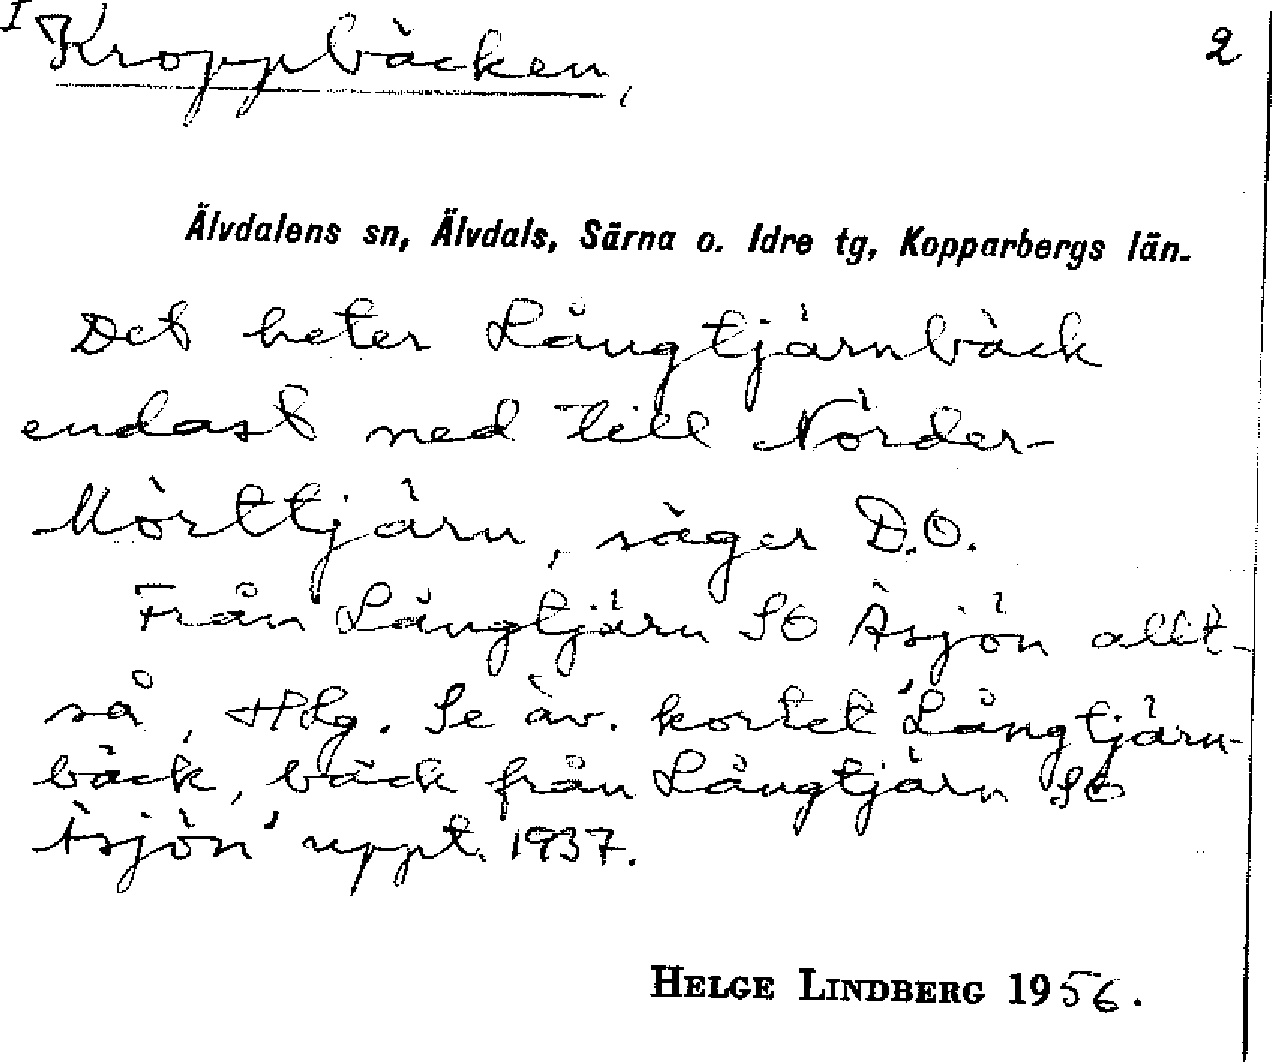 I Kroppbäcken, 2
Älvdalens sn, Älvdals, Särna o. Idre tg, Kopparbergs län.
Det heter Långtjärnbäck
endast ned till Nörder-
Mörttjärn, säger D.O.
Från Långtjärn SO Åsjön allt-
så, HLg. Se äv. kortet 'Långtjärn-
bäck, bäck från Långtjärn SO
Åsjön' uppt. 1937.
HELGE LINDBERG 1956.